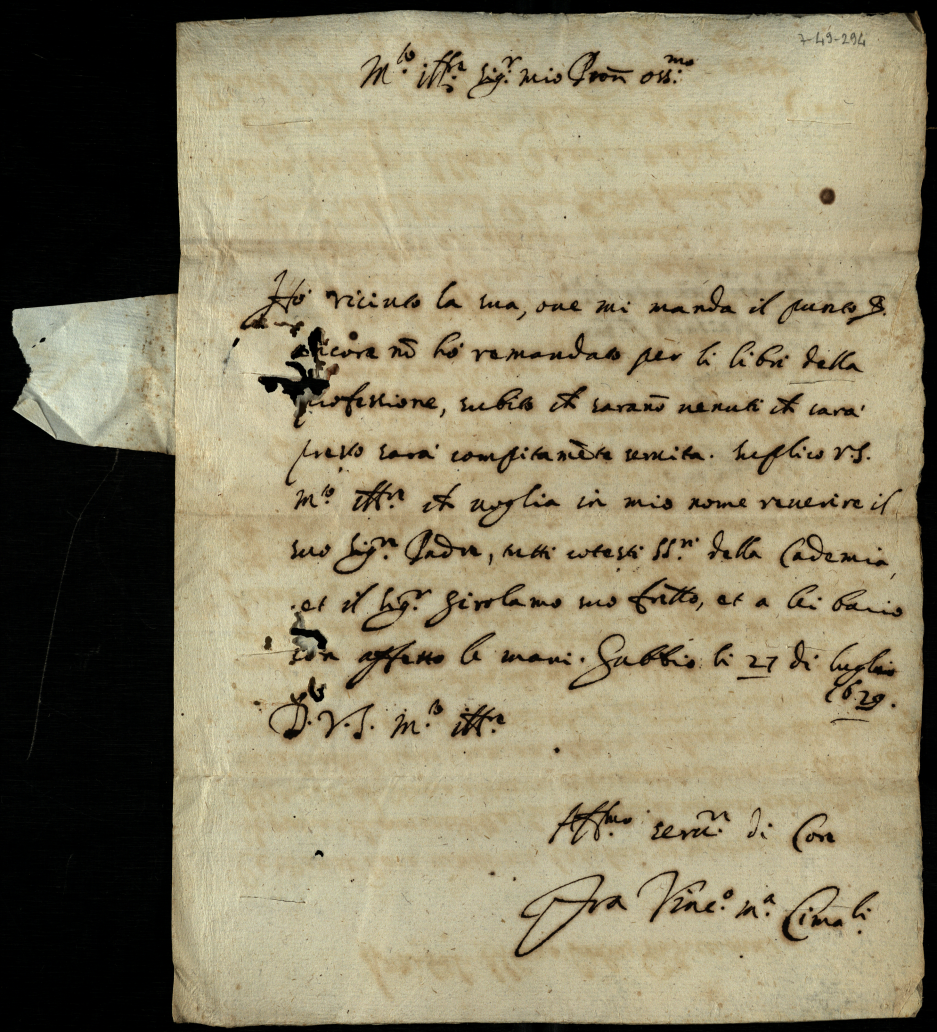 7-49-294
M.to Ill.re Sig.r mio Pron oss.mo
Ho riciuto la sua, oue mi manda il punto &.
ancora nõ hò remandato per li libri della
professione, subito ch sarañò uenuti ch sarà
presto sarà compitamẽte seruita. suplico V.S.
M.to Ill.re ch uoglia in mio nome reuerire il
suo Sig.re Padre, tutti cotesti SS.ri della Cademia,
et il Sig.r Girolamo suo frãtto, et a lei bacio
con affetto le mani. Gubbio li 27 di luglio
1629.
D. V. S. M.to Ill.re
Aff.mo seru.re di Core
Fra Vinc.o M.a Cimali